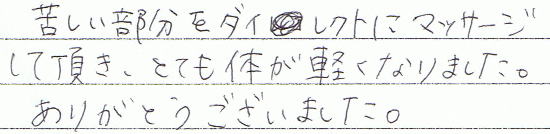 苦しい部分をダイレクトにマッサージ
して頂き、とても体が軽くなりました。
ありがとうございました。